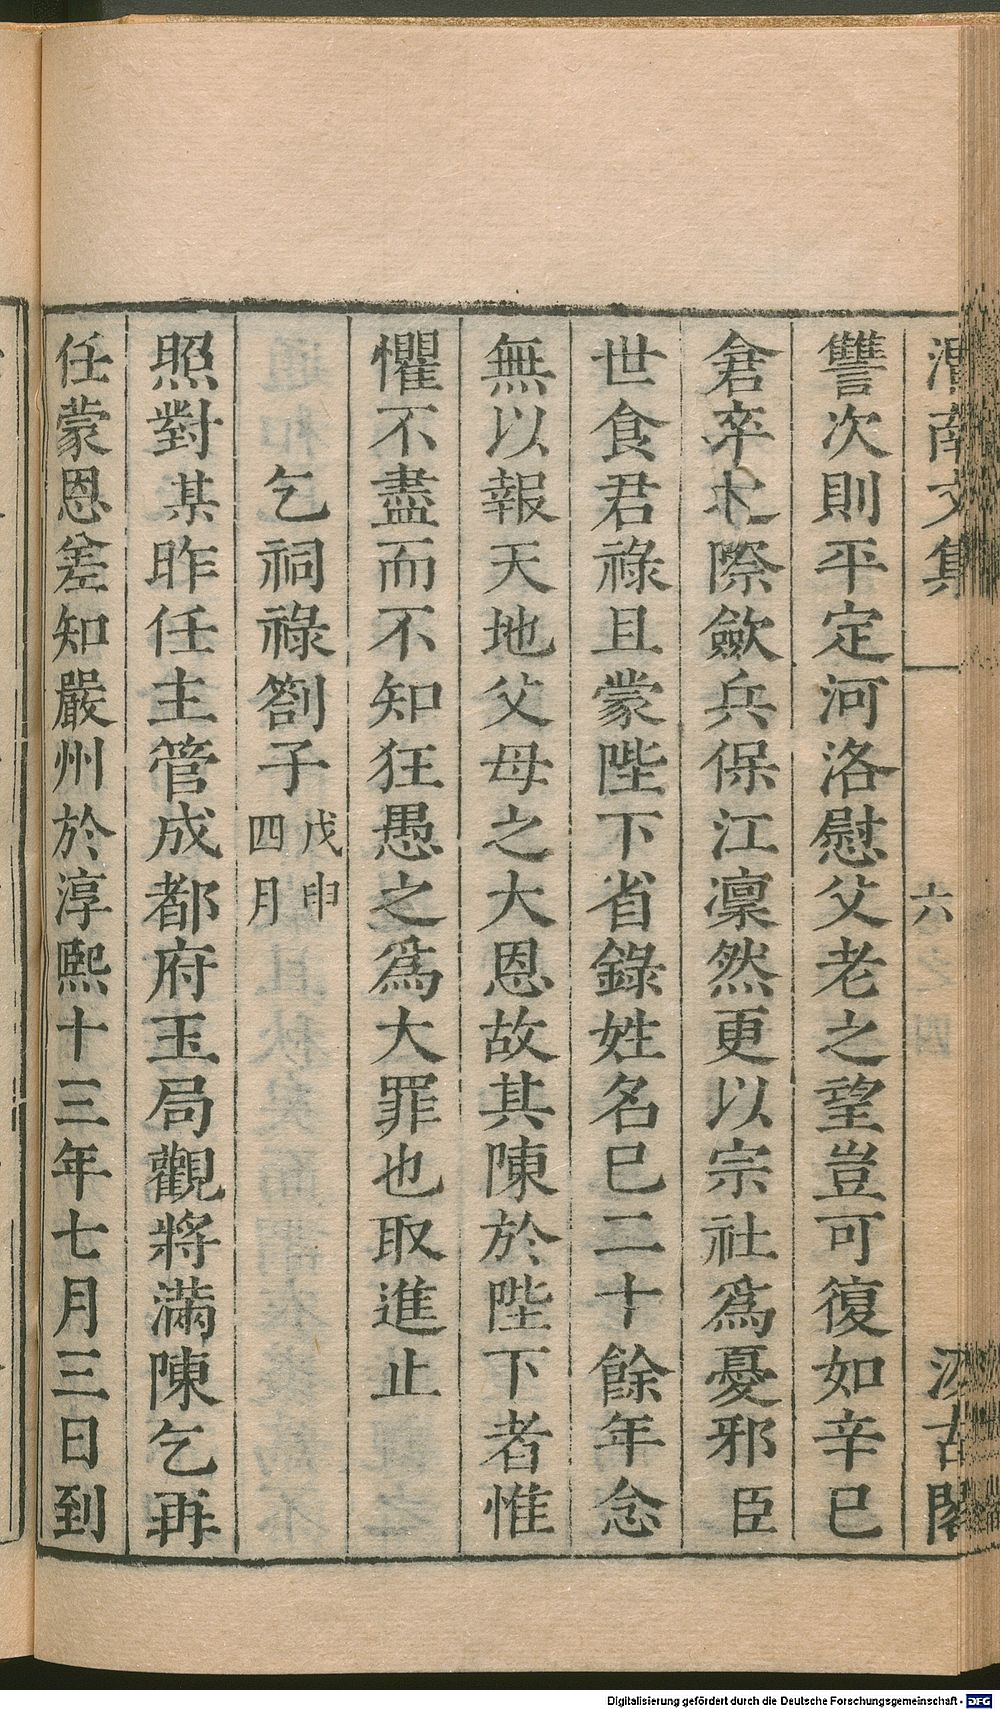 渭南文集 六 汲古閣
讐次則平定河洛慰父老之望豈可復如辛巳
倉卒際歛兵保江凜然更以宗社爲憂邪臣
世食君祿且蒙陛下省錄姓名巳二十餘年念
無以報天地父母之大恩故其陳於陛下者惟
懼不盡而不知狂愚之爲大罪也取進止
乞祠祿劄子 戊申
四月
照對某昨任主管成都府玉局觀將滿陳乞再
任蒙恩差知嚴州於淳熙十三年七月三日到
Digitalisierung gefördert durch die Deutsche Forschungsgemeinschaft - DFG